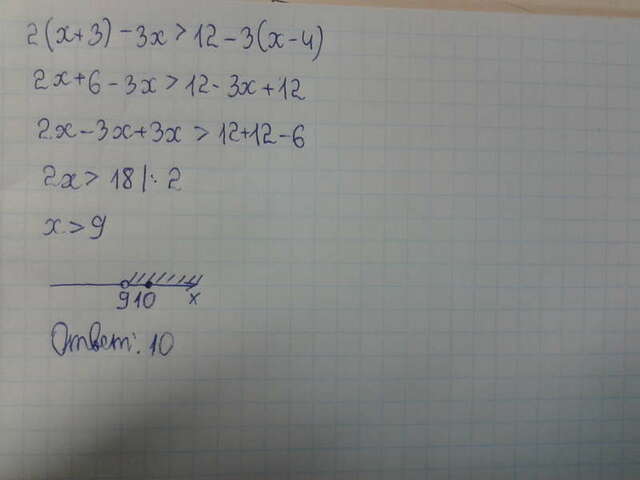 2(x+3)-3x>12-3(x-4)
2x+6-3x>12-3x+12
2x-3x+3x>12+12-6
2x>18|:2
x>9
9 10 x
Ответ: 10